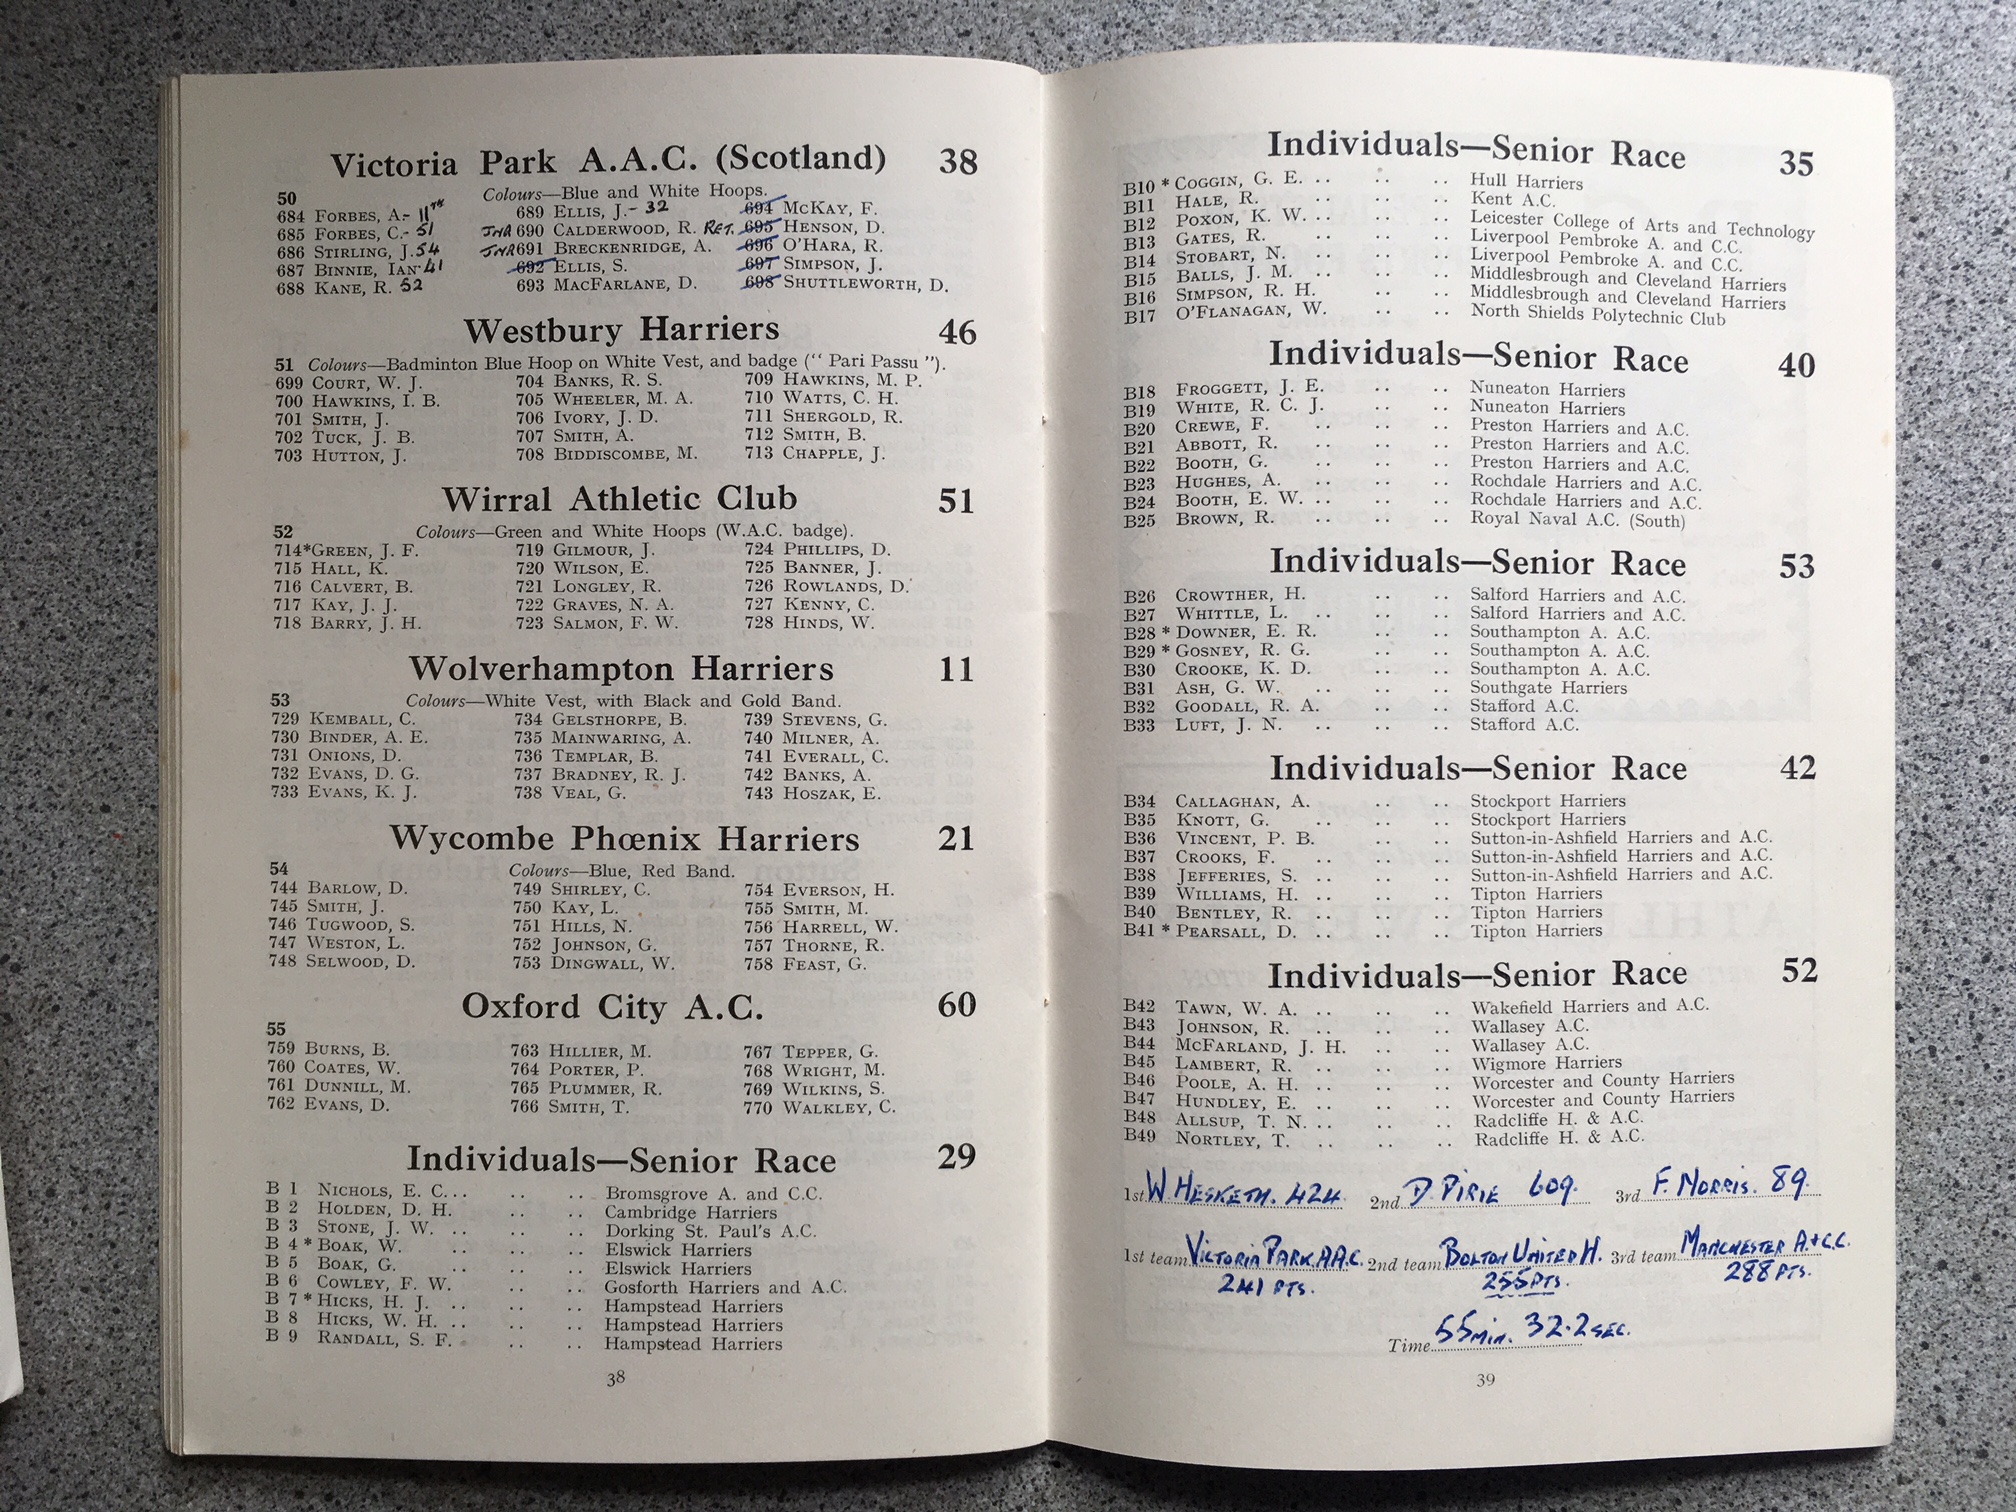 Victoria Park A.A.C. (Scotland) 38
50 Colours—Blue and White Hoops.
684 FORBES, A.- 11TH 689 ELLIS, J.- 32 694 MCKAY, F.
685 FORBES, C.- 51 JNR 690 CALDERWOOD, R. RET. 695 HENSON, D.
686 STIRLING, J. 54 JNR 691 BRECKENRIDGE, A. 696 O'HARA, R.
687 BINNIE, IAN- 41 692 ELLIS, S. 697 SIMPSON, J.
688 KANE, R. 52 693 MACFARLANE, D. 698 SHUTTLEWORTH, D.
Westbury Harriers 46
51 Colours—Badminton Blue Hoop on White Vest, and badge (“ Pari Passu ”).
699 COURT, W. J. 704 BANKS, R. S. 709 HAWKINS, M. P.
700 HAWKINS, I. B. 705 WHEELER, M. A. 710 WATTS, C. H.
701 SMITH, J. 706 IVORY, J. D. 711 SHERGOLD, R.
702 TUCK, J. B. 707 SMITH, A. 712 SMITH, B.
703 HUTTON, J. 708 BIDDISCOMBE, M. 713 CHAPPLE, J.
Wirral Athletic Club 51
52 Colours—Green and White Hoops (W.A.C. badge).
714*GREEN, J. F. 719 GILMOUR, J. 724 PHILLIPS, D.
715 HALL, K. 720 WILSON, E. 725 BANNER, J.
716 CALVERT, B. 721 LONGLEY, R. 726 ROWLANDS, D.
717 KAY, J. J. 722 GRAVES, N. A. 727 KENNY, C.
718 BARRY, J. H. 723 SALMON, F. W. 728 HINDS, W.
Wolverhampton Harriers 11
53 Colours—White Vest, with Black and Gold Band.
729 KEMBALL, C. 734 GELSTHORPE, B. 739 STEVENS, G.
730 BINDER, A. E. 735 MAINWARING, A. 740 MILNER, A.
731 ONIONS, D. 736 TEMPLAR, B. 741 EVERALL, C.
732 EVANS, D. G. 737 BRADNEY, R. J. 742 BANKS, A.
733 EVANS, K. J. 738 VEAL, G. 743 HOSZAK, E.
Wycombe Phœnix Harriers 21
54 Colours—Blue, Red Band.
744 BARLOW, D. 749 SHIRLEY, C. 754 EVERSON, H.
745 SMITH, J. 750 KAY, L. 755 SMITH, M.
746 TUGWOOD, S. 751 HILLS, N. 756 HARRELL, W.
747 WESTON, L. 752 JOHNSON, G. 757 THORNE, R.
748 SELWOOD, D. 753 DINGWALL, W. 758 FEAST, G.
Oxford City A.C. 60
55
759 BURNS, B. 763 HILLIER, M. 767 TEPPER, G.
760 COATES, W. 764 PORTER, P. 768 WRIGHT, M.
761 DUNNILL, M. 765 PLUMMER, R. 769 WILKINS, S.
762 EVANS, D. 766 SMITH, T. 770 WALKLEY, C.
Individuals—Senior Race 29
B 1 NICHOLS, E. C. .. .. .. Bromsgrove A. and C.C.
B 2 HOLDEN, D. H. .. .. Cambridge Harriers
B 3 STONE, J. W. .. .. .. Dorking St. Paul's A.C.
B 4 * BOAK, W. .. .. .. Elswick Harriers
B 5 BOAK, G. .. .. .. Elswick Harriers
B 6 COWLEY, F. W. .. .. Gosforth Harriers and A.C.
B 7 * HICKS, H. J. .. .. .. Hampstead Harriers
B 8 HICKS, W. H. .. .. .. Hampstead Harriers
B 9 RANDALL, S. F. .. .. Hampstead Harriers
38
Individuals—Senior Race 35
B10 * COGGIN, G. E. .. .. .. Hull Harriers
B11 HALE, R. .. .. .. Kent A.C.
B12 POXON, K. W. .. .. .. Leicester College of Arts and Technology
B13 GATES, R. .. .. .. Liverpool Pembroke A. and C.C.
B14 STOBART, N. .. .. Liverpool Pembroke A. and C.C.
B15 BALLS, J. M. .. .. .. Middlesbrough and Cleveland Harriers
B16 SIMPSON, R. H. .. .. Middlesbrough and Cleveland Harriers
B17 O'FLANAGAN, W. .. .. North Shields Polytechnic Club
Individuals—Senior Race 40
B18 FROGGETT, J. E. .. .. Nuneaton Harriers
B19 WHITE, R. C. J. .. .. Nuneaton Harriers
B20 CREWE, F. .. .. .. Preston Harriers and A.C.
B21 ABBOTT, R. .. .. .. Preston Harriers and A.C.
B22 BOOTH, G. .. .. .. Preston Harriers and A.C.
B23 HUGHES, A. .. .. .. Rochdale Harriers and A.C.
B24 BOOTH, E. W. .. .. .. Rochdale Harriers and A.C.
B25 BROWN, R. .. .. .. Royal Naval A.C. (South)
Individuals—Senior Race 53
B26 CROWTHER, H. .. .. Salford Harriers and A.C.
B27 WHITTLE, L. .. .. .. Salford Harriers and A.C.
B28 * DOWNER, E. R. .. .. Southampton A. A.C.
B29 * GOSNEY, R. G. .. .. Southampton A. A.C.
B30 CROOKE, K. D. .. .. Southampton A. A.C.
B31 ASH, G. W. .. .. .. Southgate Harriers
B32 GOODALL, R. A. .. .. Stafford A.C.
B33 LUFT, J. N. .. .. .. Stafford A.C.
Individuals—Senior Race 42
B34 CALLAGHAN, A. .. .. Stockport Harriers
B35 KNOTT, G. .. .. .. Stockport Harriers
B36 VINCENT, P. B. .. .. Sutton-in-Ashfield Harriers and A.C.
B37 CROOKS, F. .. .. .. Sutton-in-Ashfield Harriers and A.C.
B38 JEFFERIES, S. .. .. .. Sutton-in-Ashfield Harriers and A.C.
B39 WILLIAMS, H. .. .. .. Tipton Harriers
B40 BENTLEY, R. .. .. .. Tipton Harriers
B41 * PEARSALL, D. .. .. .. Tipton Harriers
Individuals—Senior Race 52
B42 TAWN, W. A. .. .. .. Wakefield Harriers and A.C.
B43 JOHNSON, R. .. .. .. Wallasey A.C.
B44 MCFARLAND, J. H. .. .. Wallasey A.C.
B45 LAMBERT, R. .. .. .. Wigmore Harriers
B46 POOLE, A. H. .. .. .. Worcester and County Harriers
B47 HUNDLEY, E. .. .. .. Worcester and County Harriers
B48 ALLSUP, T. N. .. .. .. Radcliffe H. & A.C.
B49 NORTLEY, T. .. .. .. Radcliffe H. & A.C.
1st W HESKETH. 424 2nd D PIRIE 609. 3rd F. NORRIS. 89.
1st team VICTORIA PARK A.A.C. 2nd team BOLTON UNITED H. 3rd team MANCHESTER A.+C.C.
241 PTS. 255 PTS. 288 PTS.
Time 55 min. 32.2 SEC.
39